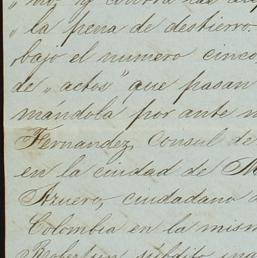 la pena de destierro.
bajo el numero cinco
de "actos" que pasan
mándola por ante
Fernandez, Consul de
en la ciudad de
Azuero, ciudadano
Colombia en la mism